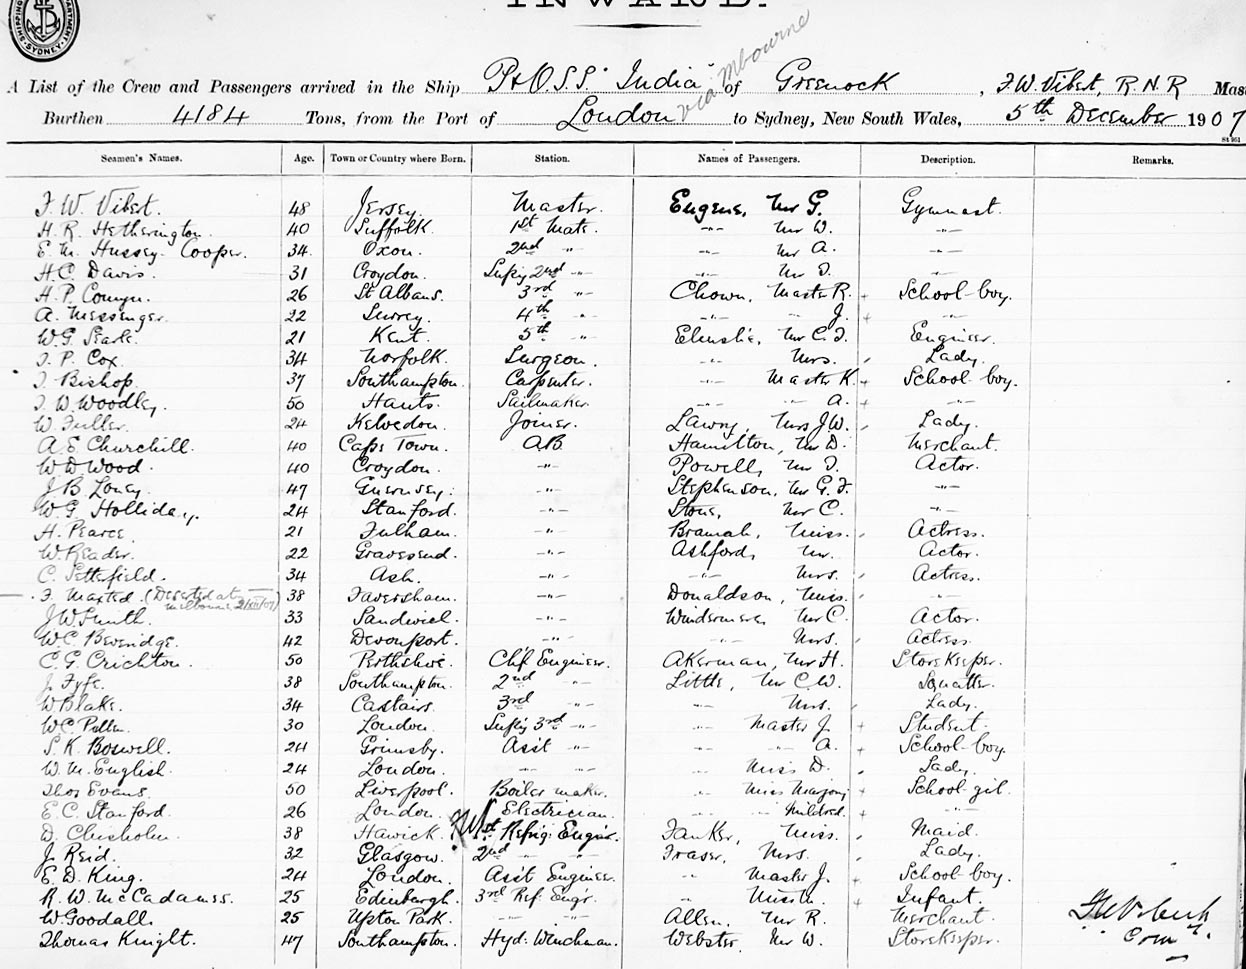 INWARD.
SHIPPING DEPARTMENT SYDNEY
via Mbourne
A List of the Crew and Passengers arrived in the Ship P&O. S.S. "India" of Greenock, F. W. Vibert, R.N.R Mas
Burthen 4184 Tons, from the Port of London to Sydney, New South Wales, 5th December 1907
Seamen's Names. Age. Town or Country where Born. Station. Names of Passengers. Description. Remarks.
F. W. Vibert. 48 Jersey. Master. Eugene, Mr G. Gymnast.
H. R. Hetherington. 40 Suffolk. 1st Mate. -"- Mr W. -"-
E. M. Hussey Cooper. 34. Oxon. 2nd -"- -"- Mr A. -"-
H. C. Davis. 31 Croydon. 2nd -"- -"- Mr -"-
H. P. 26 St Albans. 3rd -"- Chown, Master R. + School-boy.
A. Messenger. 22 Surrey. 4th " -"- J. + -"-
W. G. Searle. 21 Kent. 5th " Mr C. F. Engineer.
P. Cox. 34 Norfolk. Surgeon. -"- Mrs. Lady.
Bishop. 37 Southampton. Carpenter. -"- Master K. + School-boy.
W. Woodley. 50 Hants. Sailmaker. -"- A. + -"-
W. Fuller. 24 Kelvedon. Joiner. Lawry, Mrs J. W. Lady.
A. E. Churchill. 40 Cape Town. A.B. Hamilton, Mr D. Merchant.
W. D Wood. 40 Croydon. -"- Powell, Mr Actor.
J. B. Loney 47 Guernsey. -"- Stephenson, Mr G. F. -"-
W. G. Holliday. 24 Stanford. -"- Stone, Mr C. -"-
H. Pearce. 21 Fulham. -"- Bramah, Miss. Actress.
W. Reader. 22 Gravesend. -"- Ashford, Mr. Actor.
C. Settefield. 34 Ash. -"- -"- Mrs. Actress.
F. Maxted. (Deserted at 38 Faversham. -"- Donaldson, Miss. -"-
Melbourne 2/XII/07)
J. W. Smith. 33 Sandwich. -"- Windermere, Mr C. Actor.
W. C. Beveridge. 42 Devonport. -"- -"- Mrs. Actress.
C. G. Crichton. 50 Perthshire. Chf Engineer. Akerman, Mr H. Storekeeper.
J. Fyfe. 38 Southampton. 2nd -"- Little, Mr C. W. Squatter.
W Blake. 34 3rd -"- -"- Mrs. Lady.
W. C. 30 London. 3rd -"- -"- Master J. + Student.
S. K. Boswell. 24 Grimsby. Asst -"- -"- A. + School-boy.
W. M. English. 24 London. -"- -"- -"- Miss D. Lady.
Thos Evans. 50 Liverpool. Boiler maker. -"- Miss Marjory + School-girl.
E. C. Stanford. 26 London. Electrician. -"- Mildred. + -"-
D. Chisholm. 38 Hawick. 1st Refrig: Enginr. Miss. Maid.
J. Reid. 32 Glasgow. 2nd -"- -"- Fraser, Mrs. Lady.
E. D. King. 24 London. Asst Engineer. -"- Master J. + School-boy.
R. W. McCadam 25 Edinburgh. 3rd Ref. Engr. -"- + Infant.
W. Goodall. 25 Upton Park. -"- -"- Allen, Mr R. Merchant.
Thomas Knight. 47 Southampton. Hyd: Winchman. Webster, Mr W. Storekeeper.
F W Vibert
Comr.